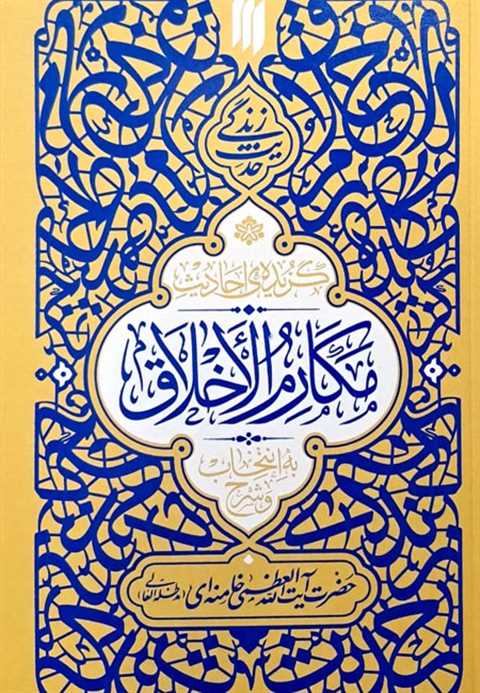 حدیث زندگی
گزیده‌ی احادیث
مَکارِمُ الأَخلاق
به انتخاب
و شرح
حضرت آیت‌الله العظمی خامنه‌ای (مدظله‌العالی)